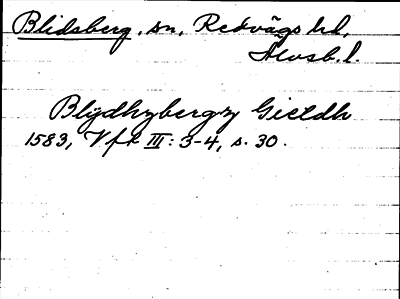 Blidsberg, sn, Redvägs hd,
Älvsb. l.
Blÿdhzbergz Gieldh
1583, Vfk III: 3-4, s. 30.